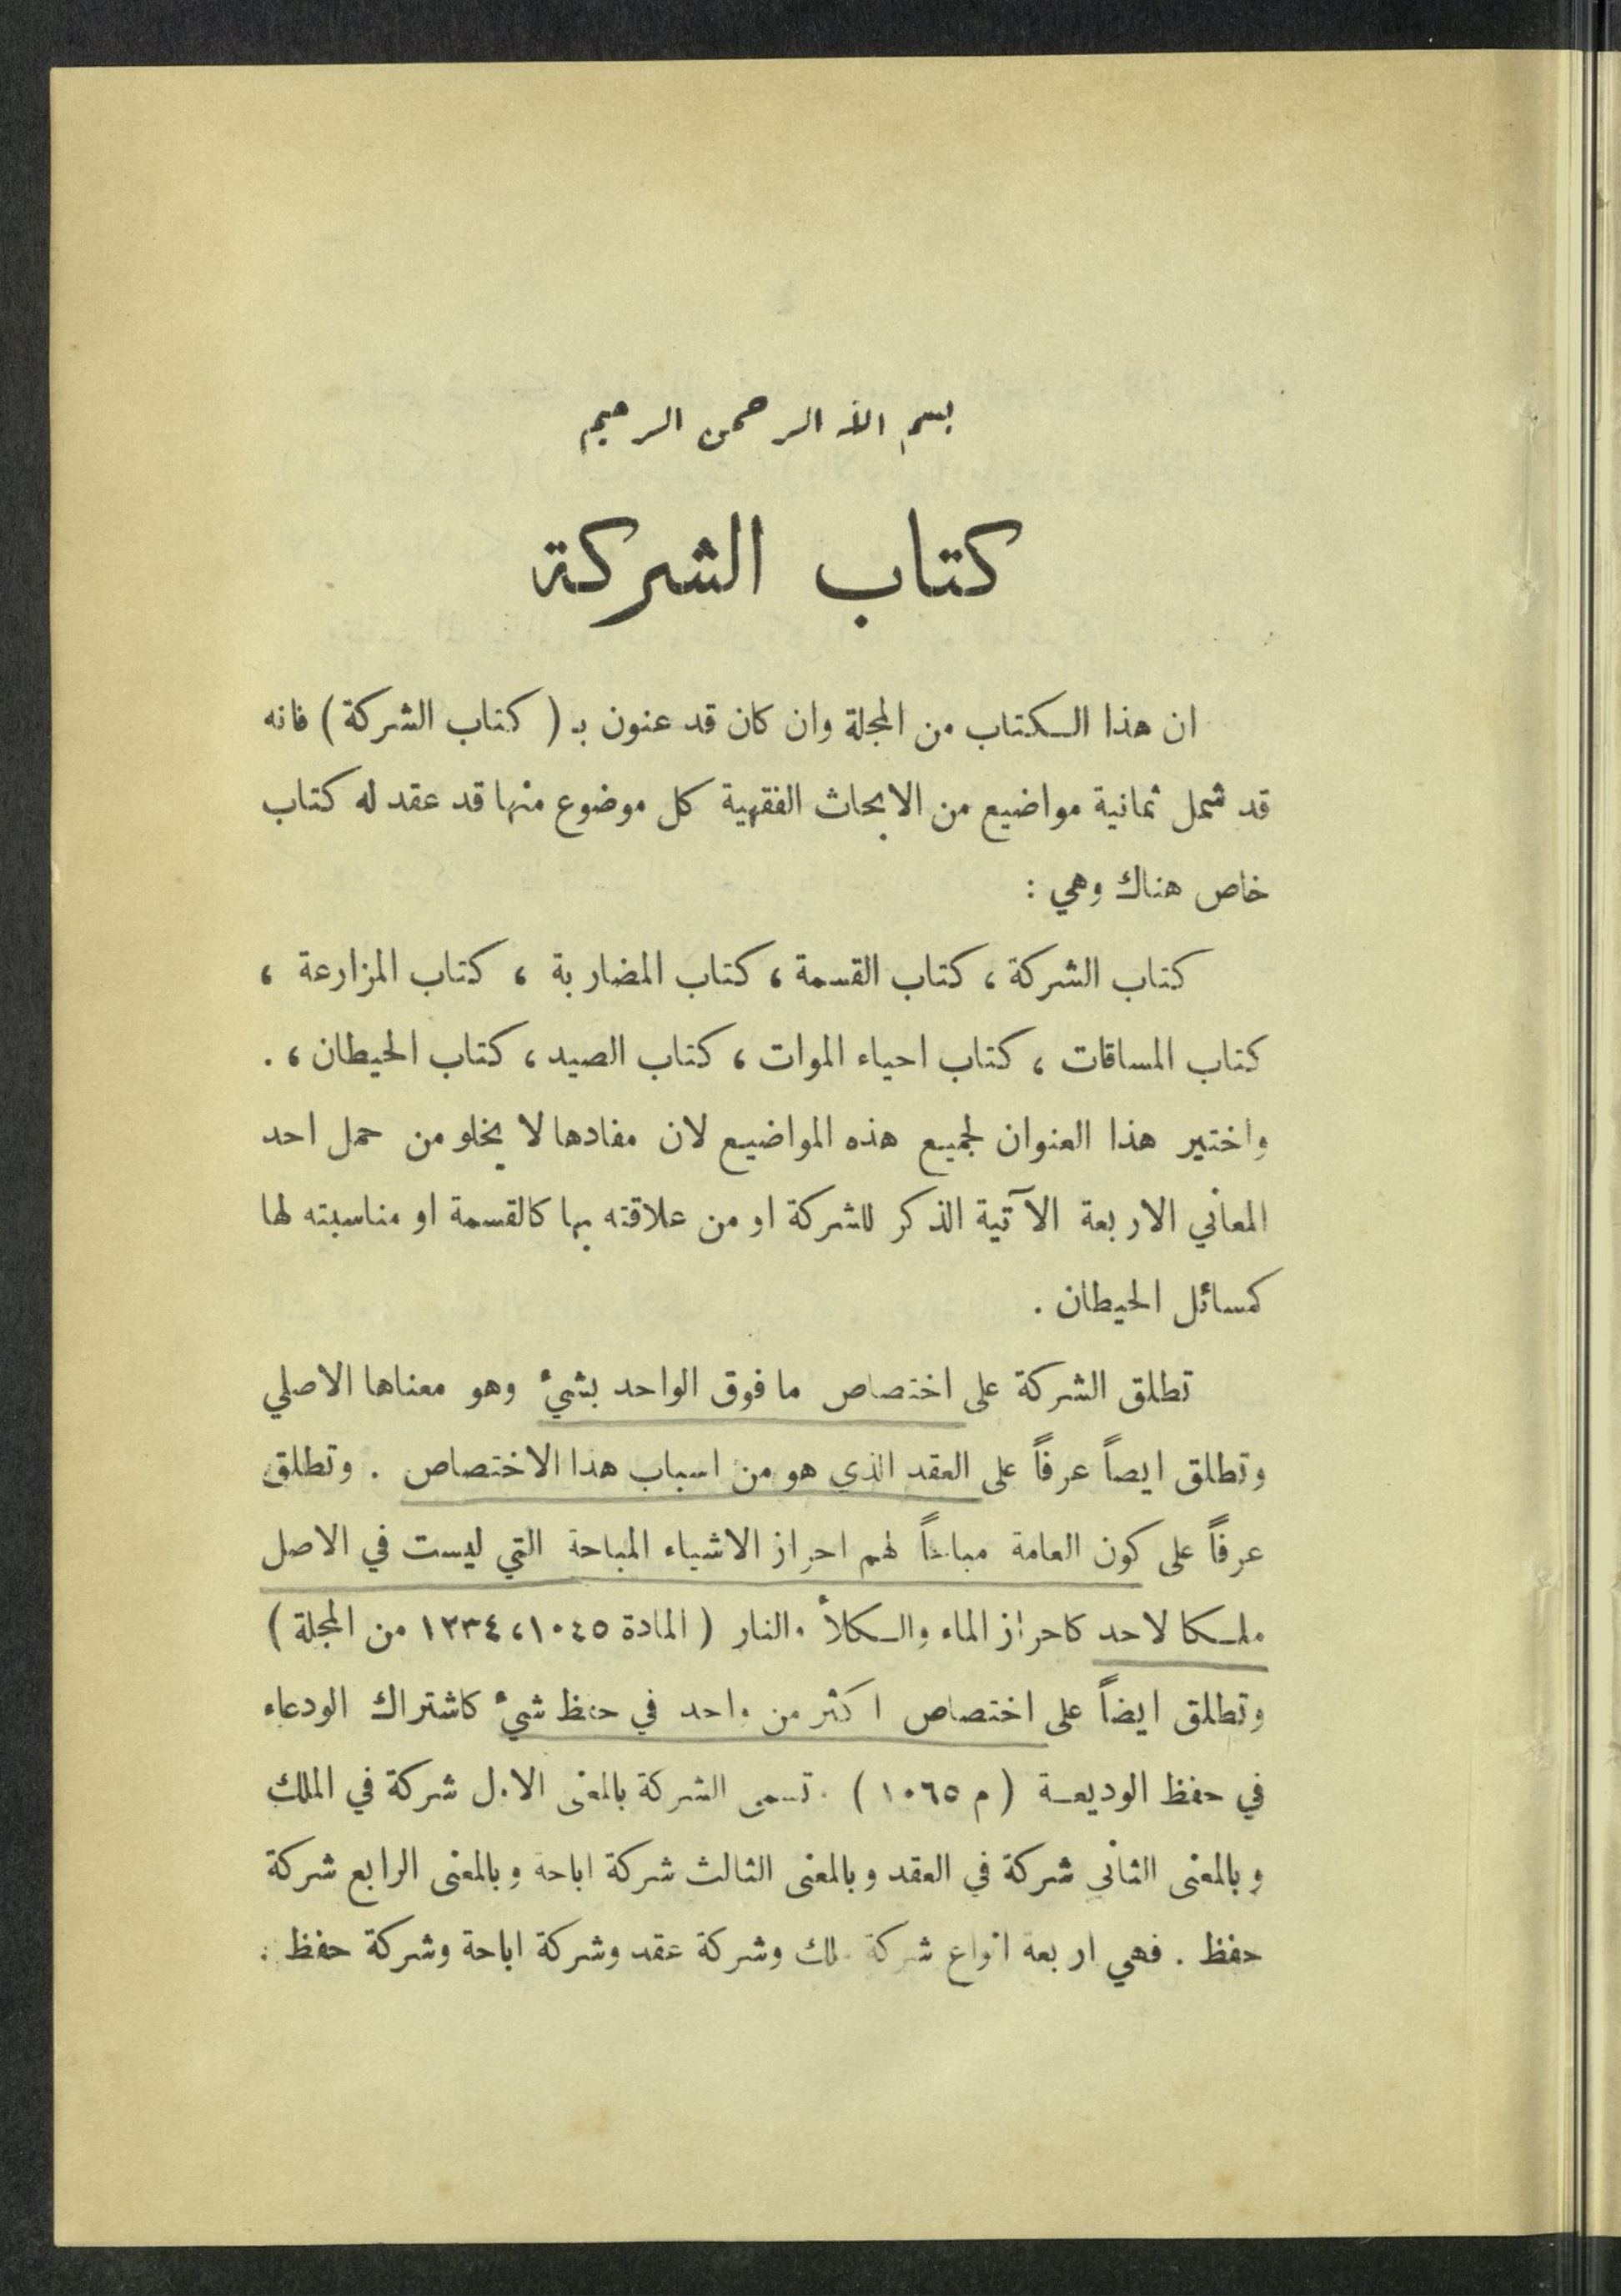 بسم الله الرحمن الرحيم
كتاب الشركة
ان هذا الكتاب من المجلة وان كان قد عنون بـ ( كتاب الشركة ) فانه
قد شمل ثمانية مواضيع من الابحاث الفقهية كل موضوع منها قد عقد له كتاب
خاص هناك وهي :
كتاب الشركة ، كتاب القسمة ، كتاب المضاربة ، كتاب المزارعة ،
كتاب المساقات ، كتاب احياء الموات ، كتاب الصيد ، كتاب الحيطان ، .
واختير هذا العنوان لجميع هذه المواضيع لان مفادها لا يخلو من حمل احد
المعاني الاربعة الآتية الذكر للشركة او من علاقته بها كالقسمة او مناسبته لها
كمسائل الحيطان .
تطلق الشركة على اختصاص ما فوق الواحد بشيء وهو معناها الاصلي
وتطلق ايصاً عرفاً على العقد الذي هو من اسباب هذا الاختصاص . وتطلق
عرفاً على كون العامة مباحاً لهم احراز الاشياء المباحة التي ليست في الاصل
ملكا لاحد كاحراز الماء والكلأ والنار ( المادة ١٠٤٥ ، ١٢٣٤ من المجلة )
وتطلق ايضاً على اختصاص اكثر من واحد في حفظ شيء كاشتراك الودعاء
في حفظ الوديعة ( م ١٠٦٥ ) . تسمى الشركة بالمعنى الاول شركة في الملك
وبالمعنى الثاني شركة في العقد وبالمعنى الثالث شركة اباحة وبالمعنى الرابع شركة
حفظ . فهي اربعة انواع شركة ملك وشركة عقد وشركة اباحة وشركة حفظ .